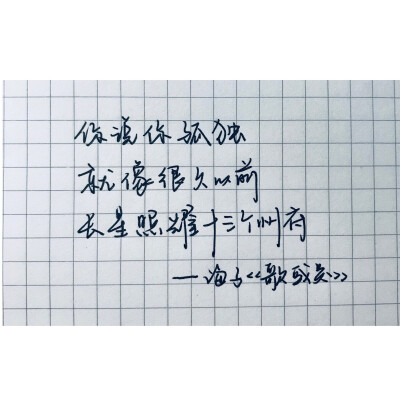 你说你孤独
就像很久以前
长星照耀十三个州府
——海子《歌或哭》